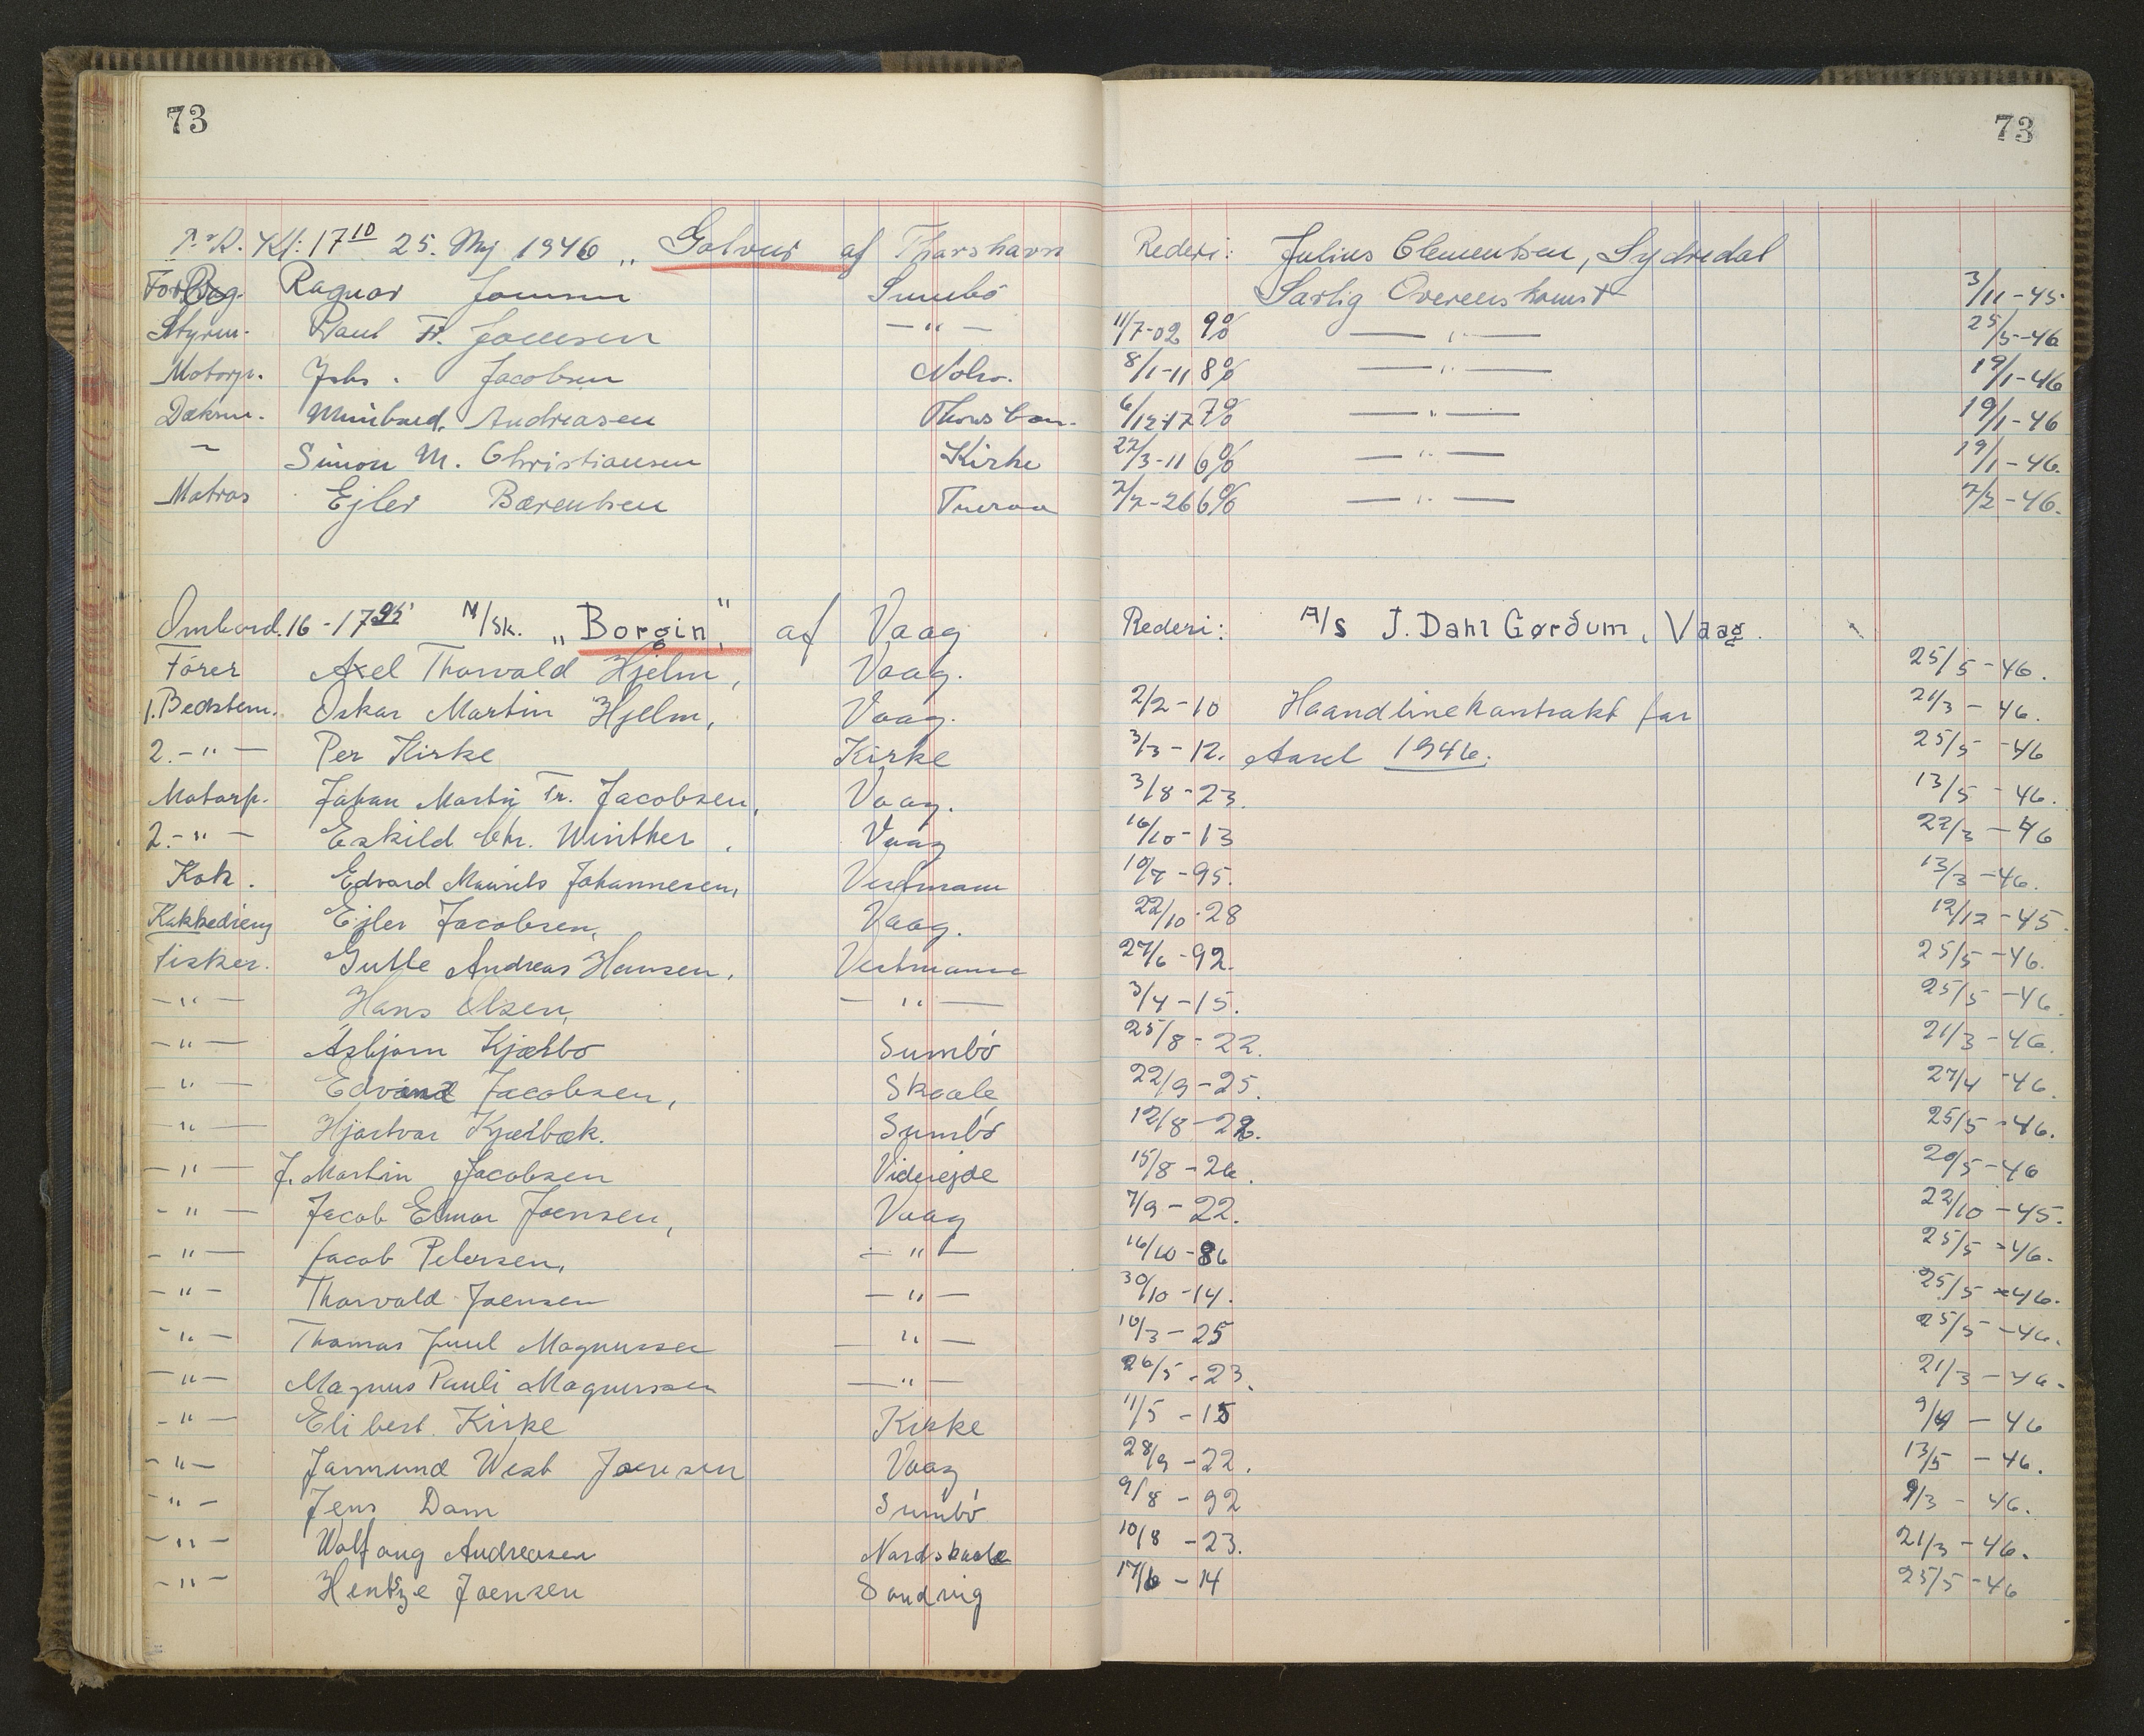 73 73
Kl: 17 10 25. Maj 1946 „ Golvur af Thorshavn Rederi: Julius Clementsen, Sydredal
Ragnar Joensen Sumbö Særlig Overenskomst 3/11-45
Styrm. Paul Fr. Joensen —"— 11/7-02 9% —"— 25/5-46
Motorp. Johs. Jacobsen Nolsö. 8/1-11 8% —"— 19/1-46
Dæksm. Andreasen 6/12-17 7% —"— 19/1-46
— Simon M. Christiansen Kirke 22/3-11 6% —"— 19/1-46.
Matros Ejler Bærentsen Tveraa 7/7-26 6% —"— 7/2-46.
Ombord. 16-17 45 M/Sk. „Borgin" af Vaag Rederi: A/S J. Dahl Gørdum, Vaag.
Förer Axel Thorvald Hjelm, Vaag. 25/5-46.
1. Bedstem. Oskar Martin Hjelm, Vaag. 2/2-10 Haandlinekontrakt for 21/3-46.
2.-"- Per Kirke Kirke 3/3-12. Aaret 1946. 25/5-46
Motorp. Johan Martin Fr. Jacobsen, Vaag. 3/8-23. 13/5-46.
2.-"- Eskild Chr. Winther, Vaag 16/10-13 22/3-46
Kok. Edvard Maurits Johannesen, Vestmann 10/7-95. 13/3-46.
Kokkedreng Ejler Jacobsen, Vaag. 22/10-28 12/12-45.
Fisker. Gutte Andreas Hansen, Vestmanna 27/6-92. 25/5-46.
-"- Hans Olsen, —"— 3/4-15. 25/5-46.
-"- Asbjørn Kjærbo Sumbö 25/8-22. 21/3-46.
-"- Edvind Jacobsen, Skaale 22/9-25. 27/4-46.
-"- Hjartvar Kjærbæk. Sumbö 12/8-22. 25/5-46.
-"- J. Martin Jacobsen Viderejde 15/8-26. 20/5-46
-"- Jacob Elmar Joensen, Vaag 7/9-22. 22/10-45.
-"- Jacob Petersen, —"— 16/10-86 25/5-46.
-"- Thorvald Joensen —"— 30/10-14. 25/5-46.
-"- Thomas Juul Magnussen —"— 10/3-25 25/5-46.
-"- Magnus Pauli Magnussen —"— 26/5-23. 21/3-46.
-"- Elibert Kirke Kirke 11/5-15 9/4-46
-"- Jarmund West Joensen Vaag 28/9-22. 13/5-46.
-"- Jens Dam Sumbö 9/8-92 9/3-46.
-"- Wolfang Andreasen Nordskaale 10/8-23. 21/3-46.
-"- Hentze Joensen Sandvig 17/6-14 25/5-46